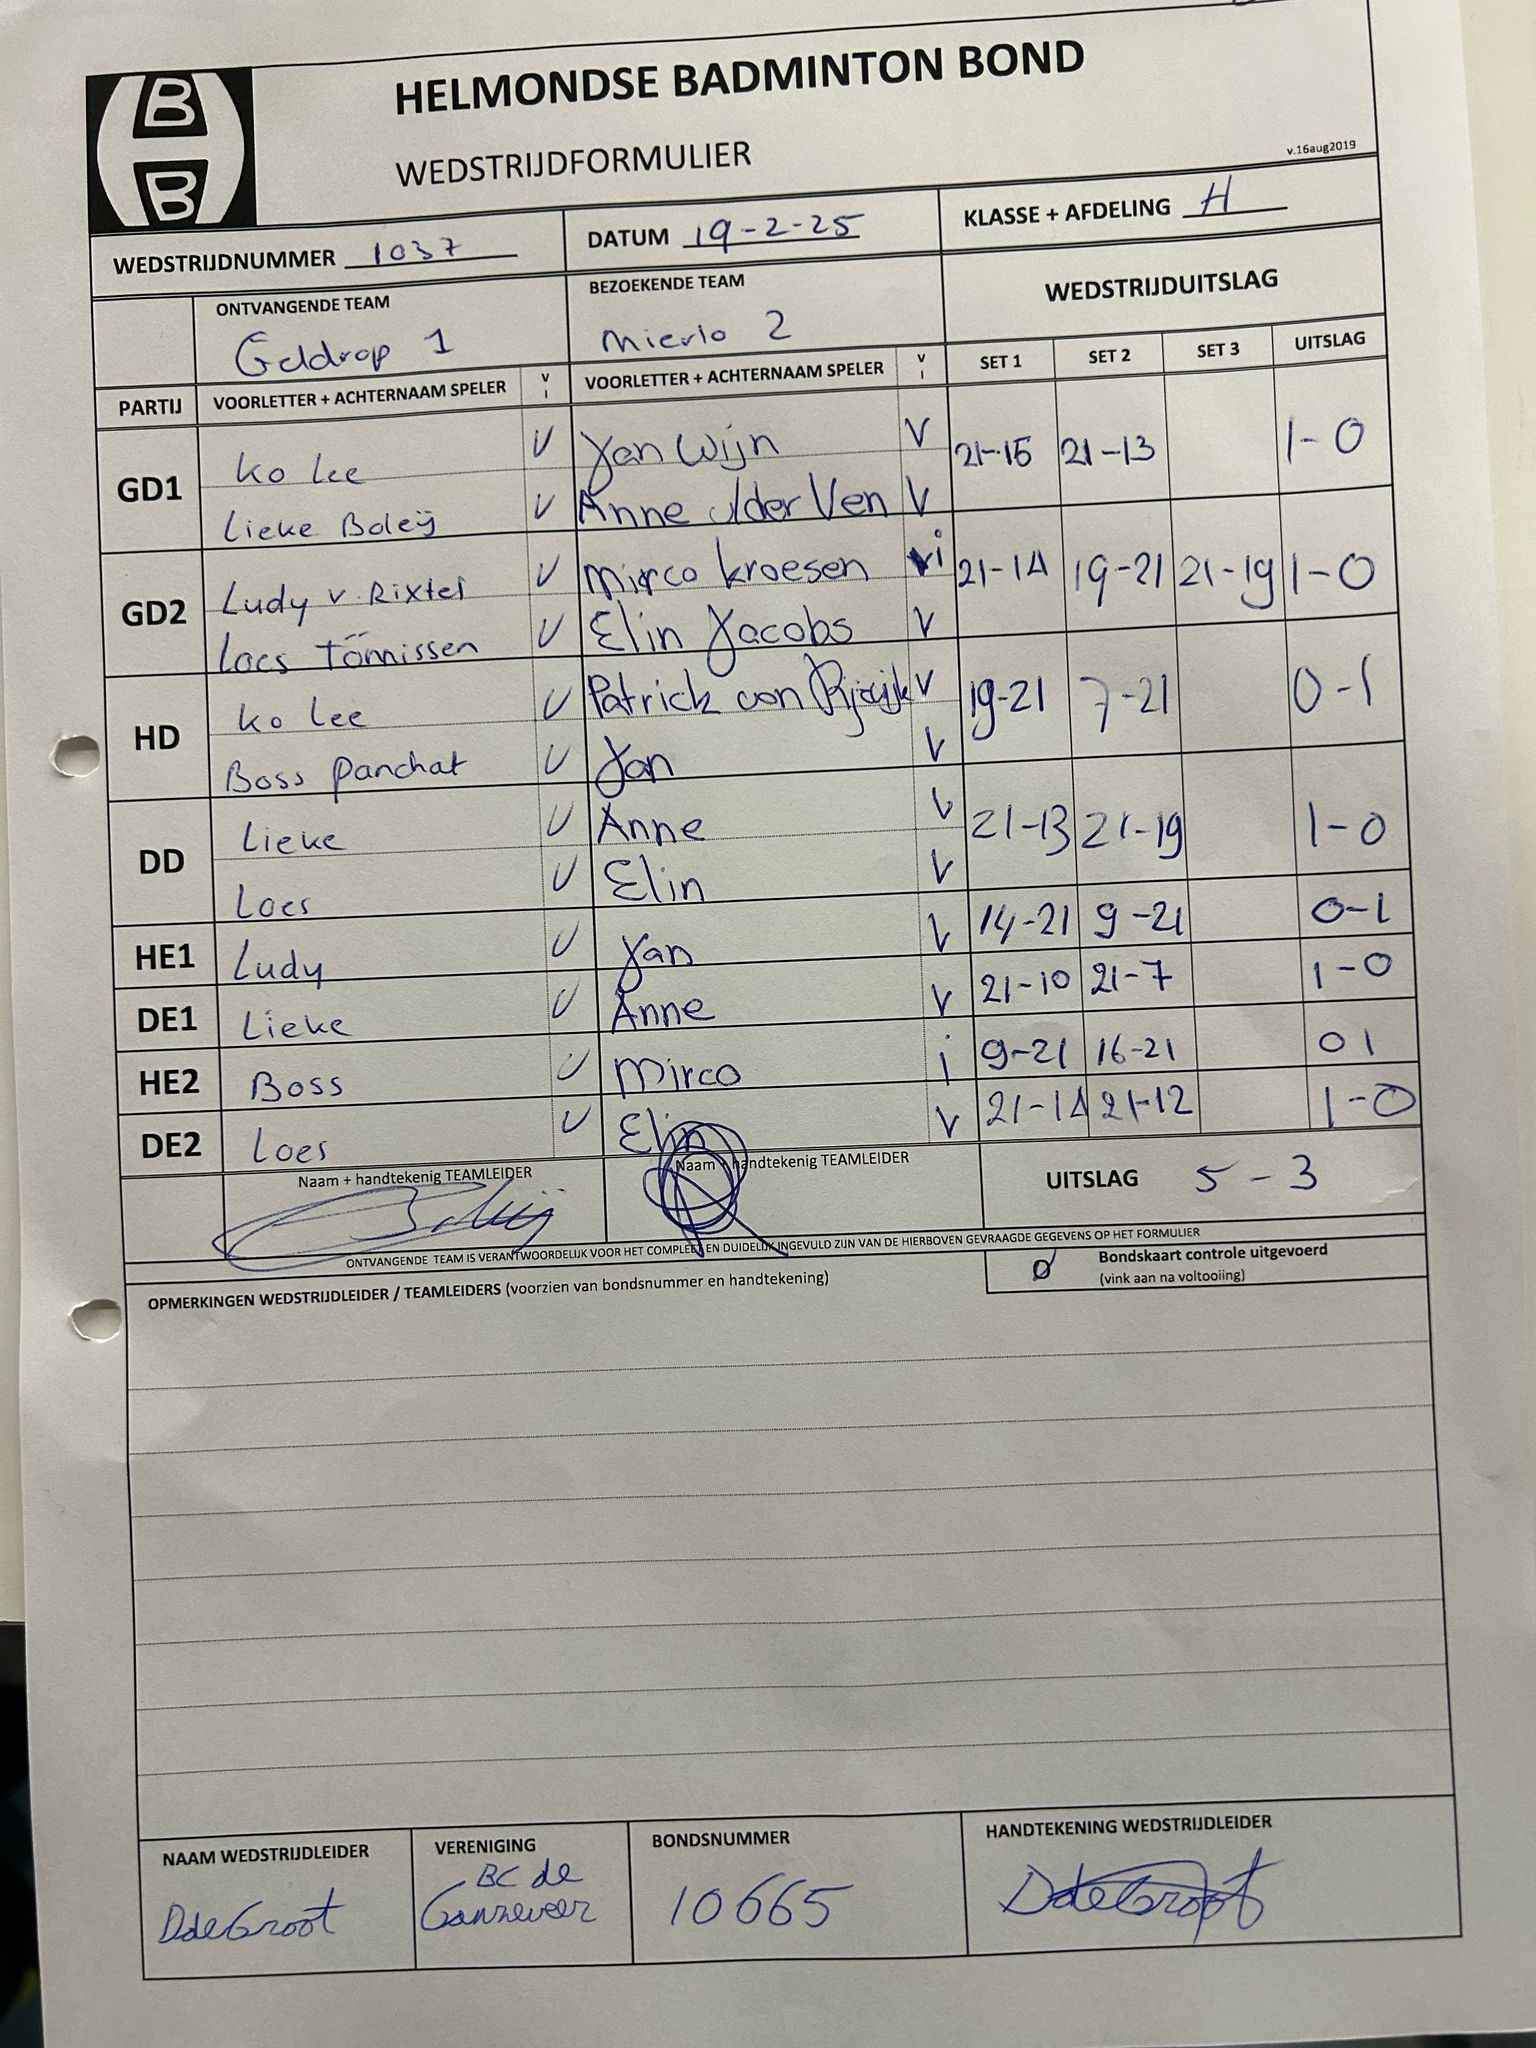 HELMONDSE BADMINTON BOND
WEDSTRIJDFORMULIER
v.16aug2019
B
B
WEDSTRIJDNUMMER 1037 DATUM 19-2-25 KLASSE + AFDELING H
ONTVANGENDE TEAM BEZOEKENDE TEAM WEDSTRIJDUITSLAG
Geldrop 1 Mierlo 2
PARTIJ VOORLETTER + ACHTERNAAM SPELER V I VOORLETTER + ACHTERNAAM SPELER V I SET 1 SET 2 SET 3 UITSLAG
GD1 Ko Lee V Jan Wijn V 21-15 21-13 1-0
Lieke Boleij V Anne v/der Ven V
GD2 Ludy v. Rixtel V Mirco Kroesen i 21-14 19-21 21-19 1-0
Loes Tönnissen V Elin Jacobs V
HD Ko Lee V Patrick van V 19-21 7-21 0-1
Boss Panchat V Jan V
DD Lieke V Anne V 21-13 21-19 1-0
Loes V Elin V
HE1 Ludy V Jan V 14-21 9-21 0-1
DE1 Lieke V Anne V 21-10 21-7 1-0
HE2 Boss V Mirco i 9-21 16-21 0 1
DE2 Loes V Elin V 21-14 21-12 1-0
Naam + handtekenig TEAMLEIDER Naam + handtekenig TEAMLEIDER UITSLAG 5-3
ONTVANGENDE TEAM IS VERANTWOORDELIJK VOOR HET COMPLEET EN DUIDELIJK INGEVULD ZIJN VAN DE HIERBOVEN GEVRAAGDE GEGEVENS OP HET FORMULIER
Bondskaart controle uitgevoerd
(vink aan na voltooiing)
OPMERKINGEN WEDSTRIJDLEIDER / TEAMLEIDERS (voorzien van bondsnummer en handtekening)
NAAM WEDSTRIJDLEIDER VERENIGING BONDSNUMMER HANDTEKENING WEDSTRIJDLEIDER
DdeGroot BC de 10665 DdeGroot